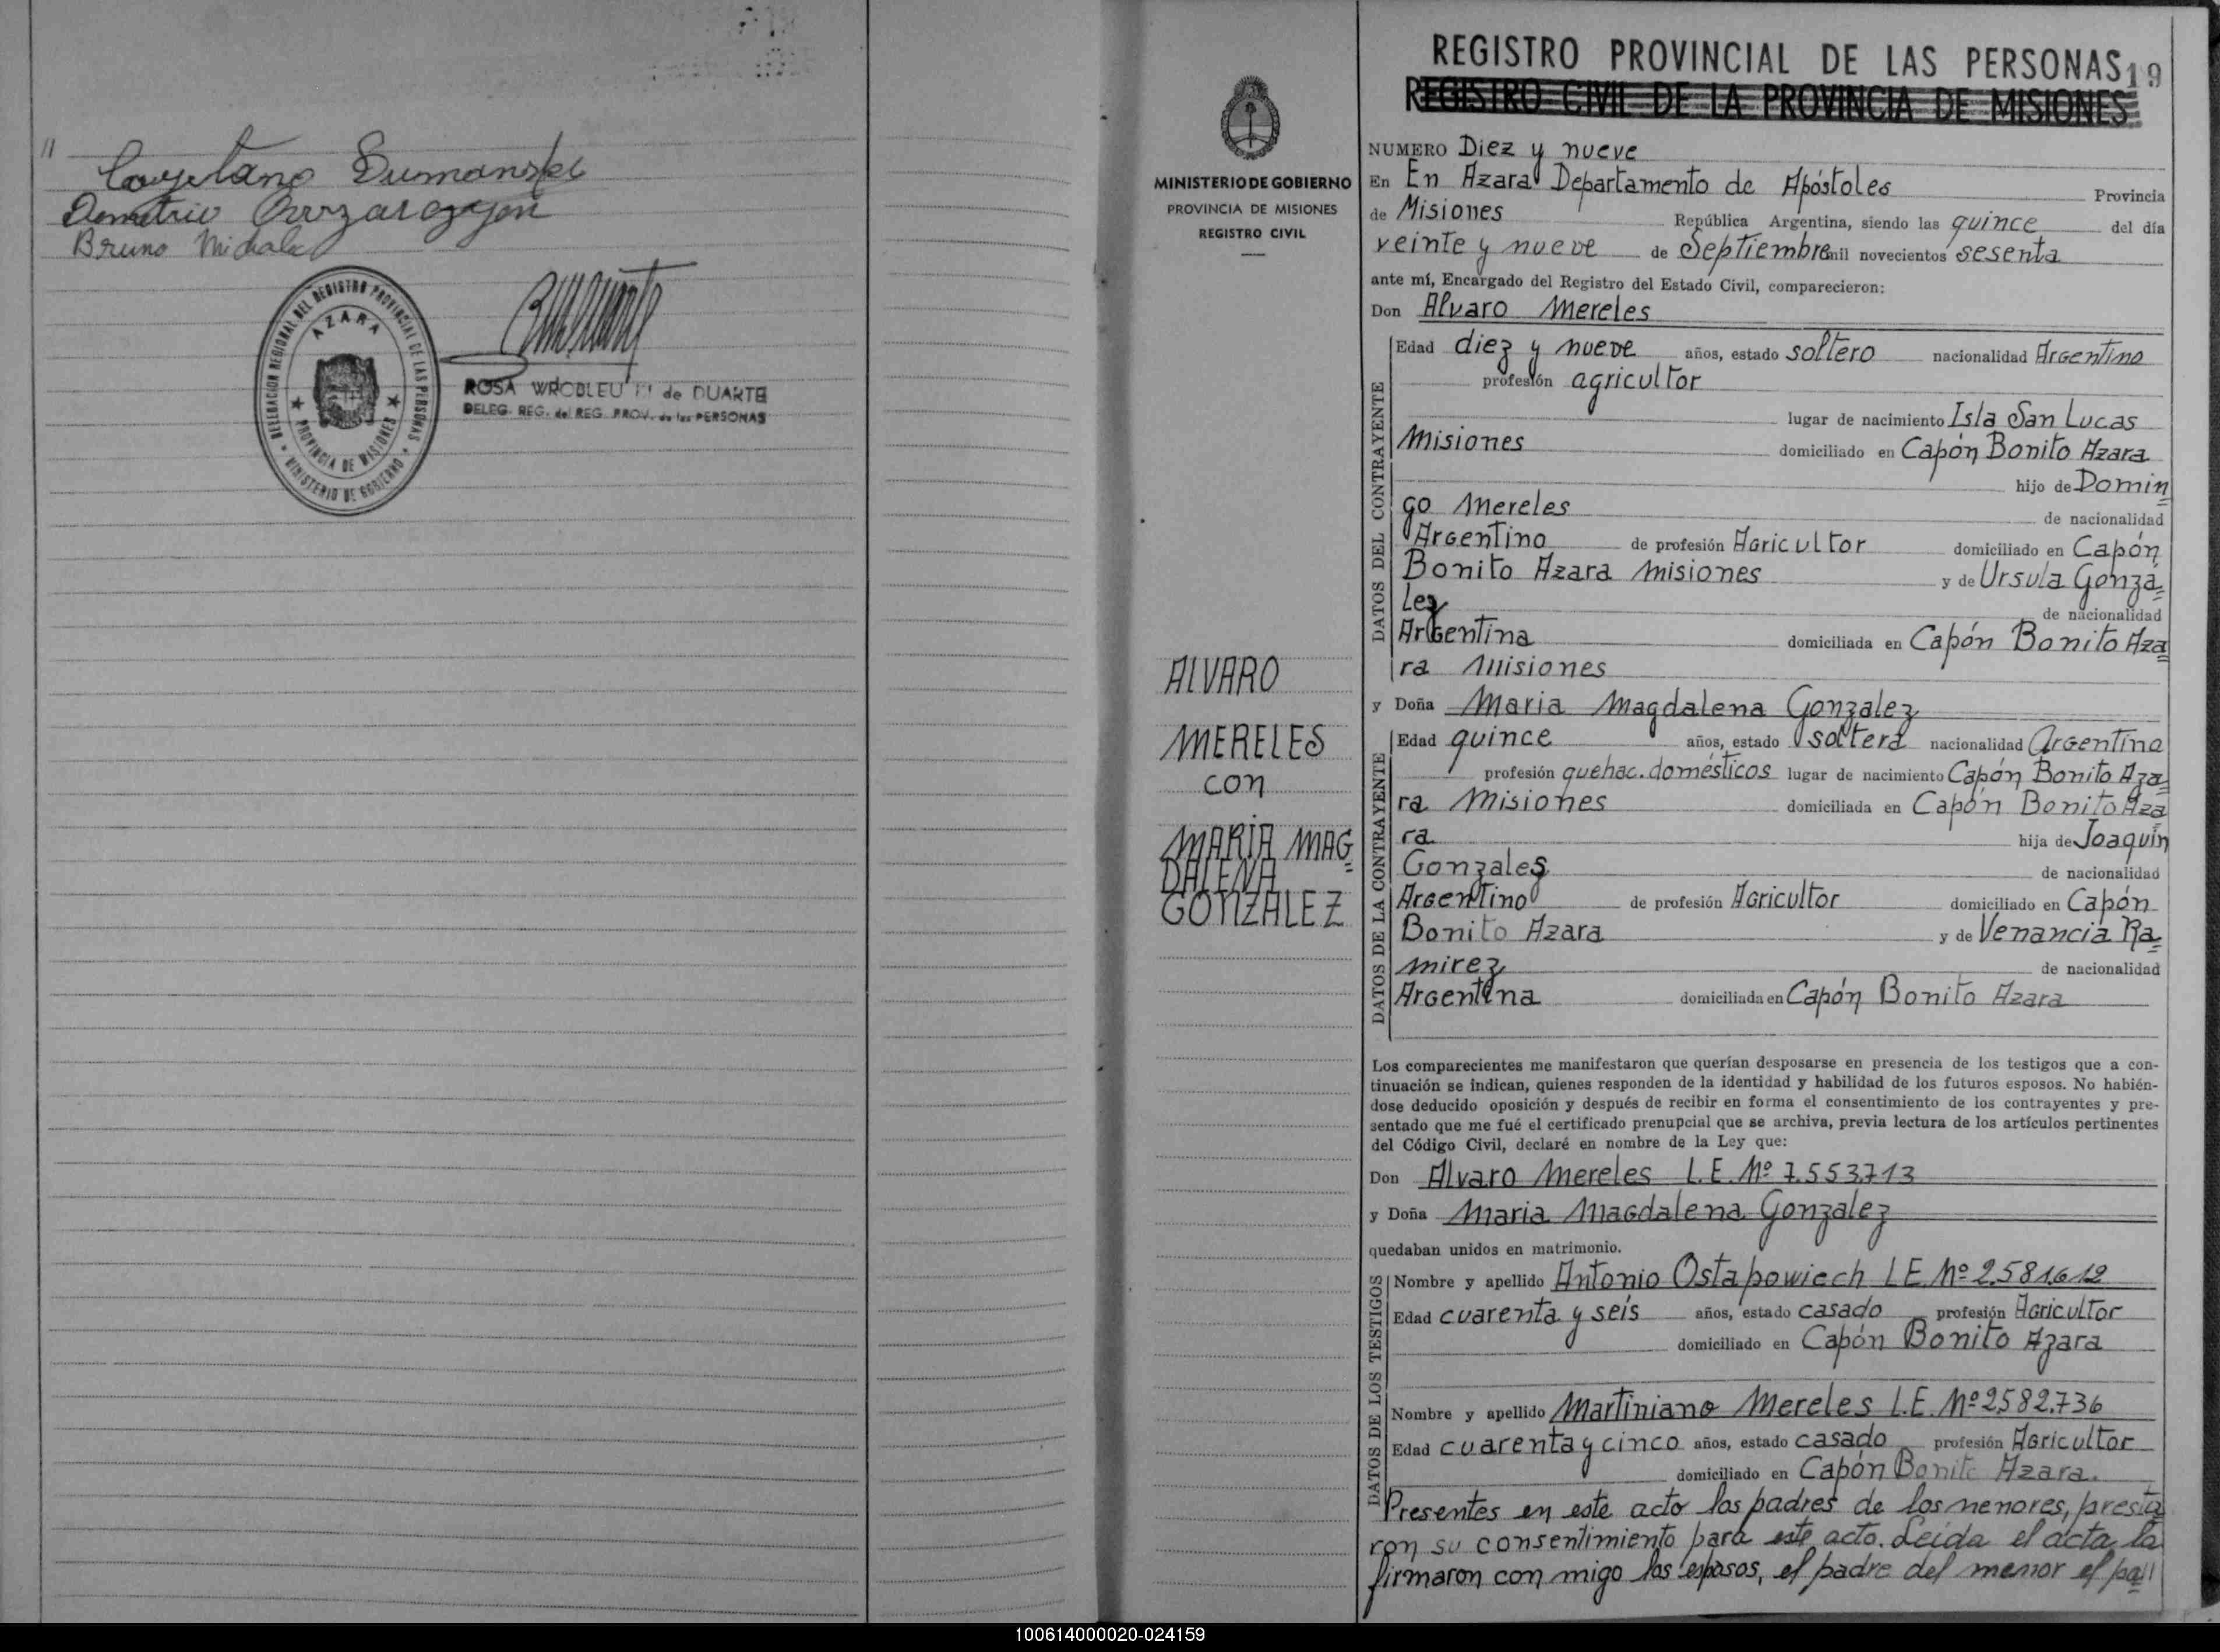 "
Cayetano Dumanski
Demetrio
Bruno Michale
DELEGACION REGIONAL DEL REGISTRO PROVINCIAL DE LAS PERSONAS
AZARA
PROVINCIA DE MISIONES
MINISTERIO DE GOBIERNO
ROSA WROBLEU de DUARTE
DELEG. REG. del REG. PROV. de las PERSONAS
MINISTERIO DE GOBIERNO
PROVINCIA DE MISIONES
REGISTRO CIVIL
ALVARO
MERELES
con
MARIA MAG=
DALENA
GONZALEZ
REGISTRO PROVINCIAL DE LAS PERSONAS 19
REGISTRO CIVIL DE LA PROVINCIA DE MISIONES
NUMERO Diez y nueve
En En Azara Departamento de Apóstoles Provincia
de Misiones República Argentina, siendo las quince del día
veinte y nueve de Septiembre mil novecientos sesenta
ante mí, Encargado del Registro del Estado Civil, comparecieron:
Don Alvaro Mereles
DATOS DEL CONTRAYENTE
Edad diez y nueve años, estado soltero nacionalidad Argentino
profesión agricultor
lugar de nacimiento Isla San Lucas
Misiones domiciliado en Capón Bonito Azara
hijo de Domin=
go Mereles de nacionalidad
Argentino de profesión Agricultor domiciliado en Capón
Bonito Azara Misiones y de Ursula Gonzá=
lez de nacionalidad
Argentina domiciliada en Capón Bonito Aza=
ra Misiones
y Doña Maria Magdalena Gonzalez
DATOS DE LA CONTRAYENTE
Edad quince años, estado soltera nacionalidad Argentina
profesión quehac. domésticos lugar de nacimiento Capón Bonito Aza=
ra Misiones domiciliada en Capón Bonito Aza=
ra hija de Joaquín
Gonzales de nacionalidad
Argentino de profesión Agricultor domiciliado en Capón
Bonito Azara y de Venancia Ra=
mirez de nacionalidad
Argentina domiciliada en Capón Bonito Azara
Los comparecientes me manifestaron que querían desposarse en presencia de los testigos que a con-
tinuación se indican, quienes responden de la identidad y habilidad de los futuros esposos. No habién-
dose deducido oposición y después de recibir en forma el consentimiento de los contrayentes y pre-
sentado que me fué el certificado prenupcial que se archiva, previa lectura de los artículos pertinentes
del Código Civil, declaré en nombre de la Ley que:
Don Alvaro Mereles L.E. Nº 7.553.713
y Doña Maria Magdalena Gonzalez
quedaban unidos en matrimonio.
DATOS DE LOS TESTIGOS
Nombre y apellido Antonio Ostapowiech L E Nº 2.581.612
Edad cuarenta y seis años, estado casado profesión Agricultor
domiciliado en Capón Bonito Azara
Nombre y apellido Martiniano Mereles L.E. Nº 2582.736
Edad cuarenta y cinco años, estado casado profesión Agricultor
domiciliado en Capón Bonito Azara.
Presentes en este acto los padres de los menores, presta=
ron su consentimiento para este acto. Leida el acta la
firmaron con migo los esposos, el padre del menor el pa=//
100614000020-024159